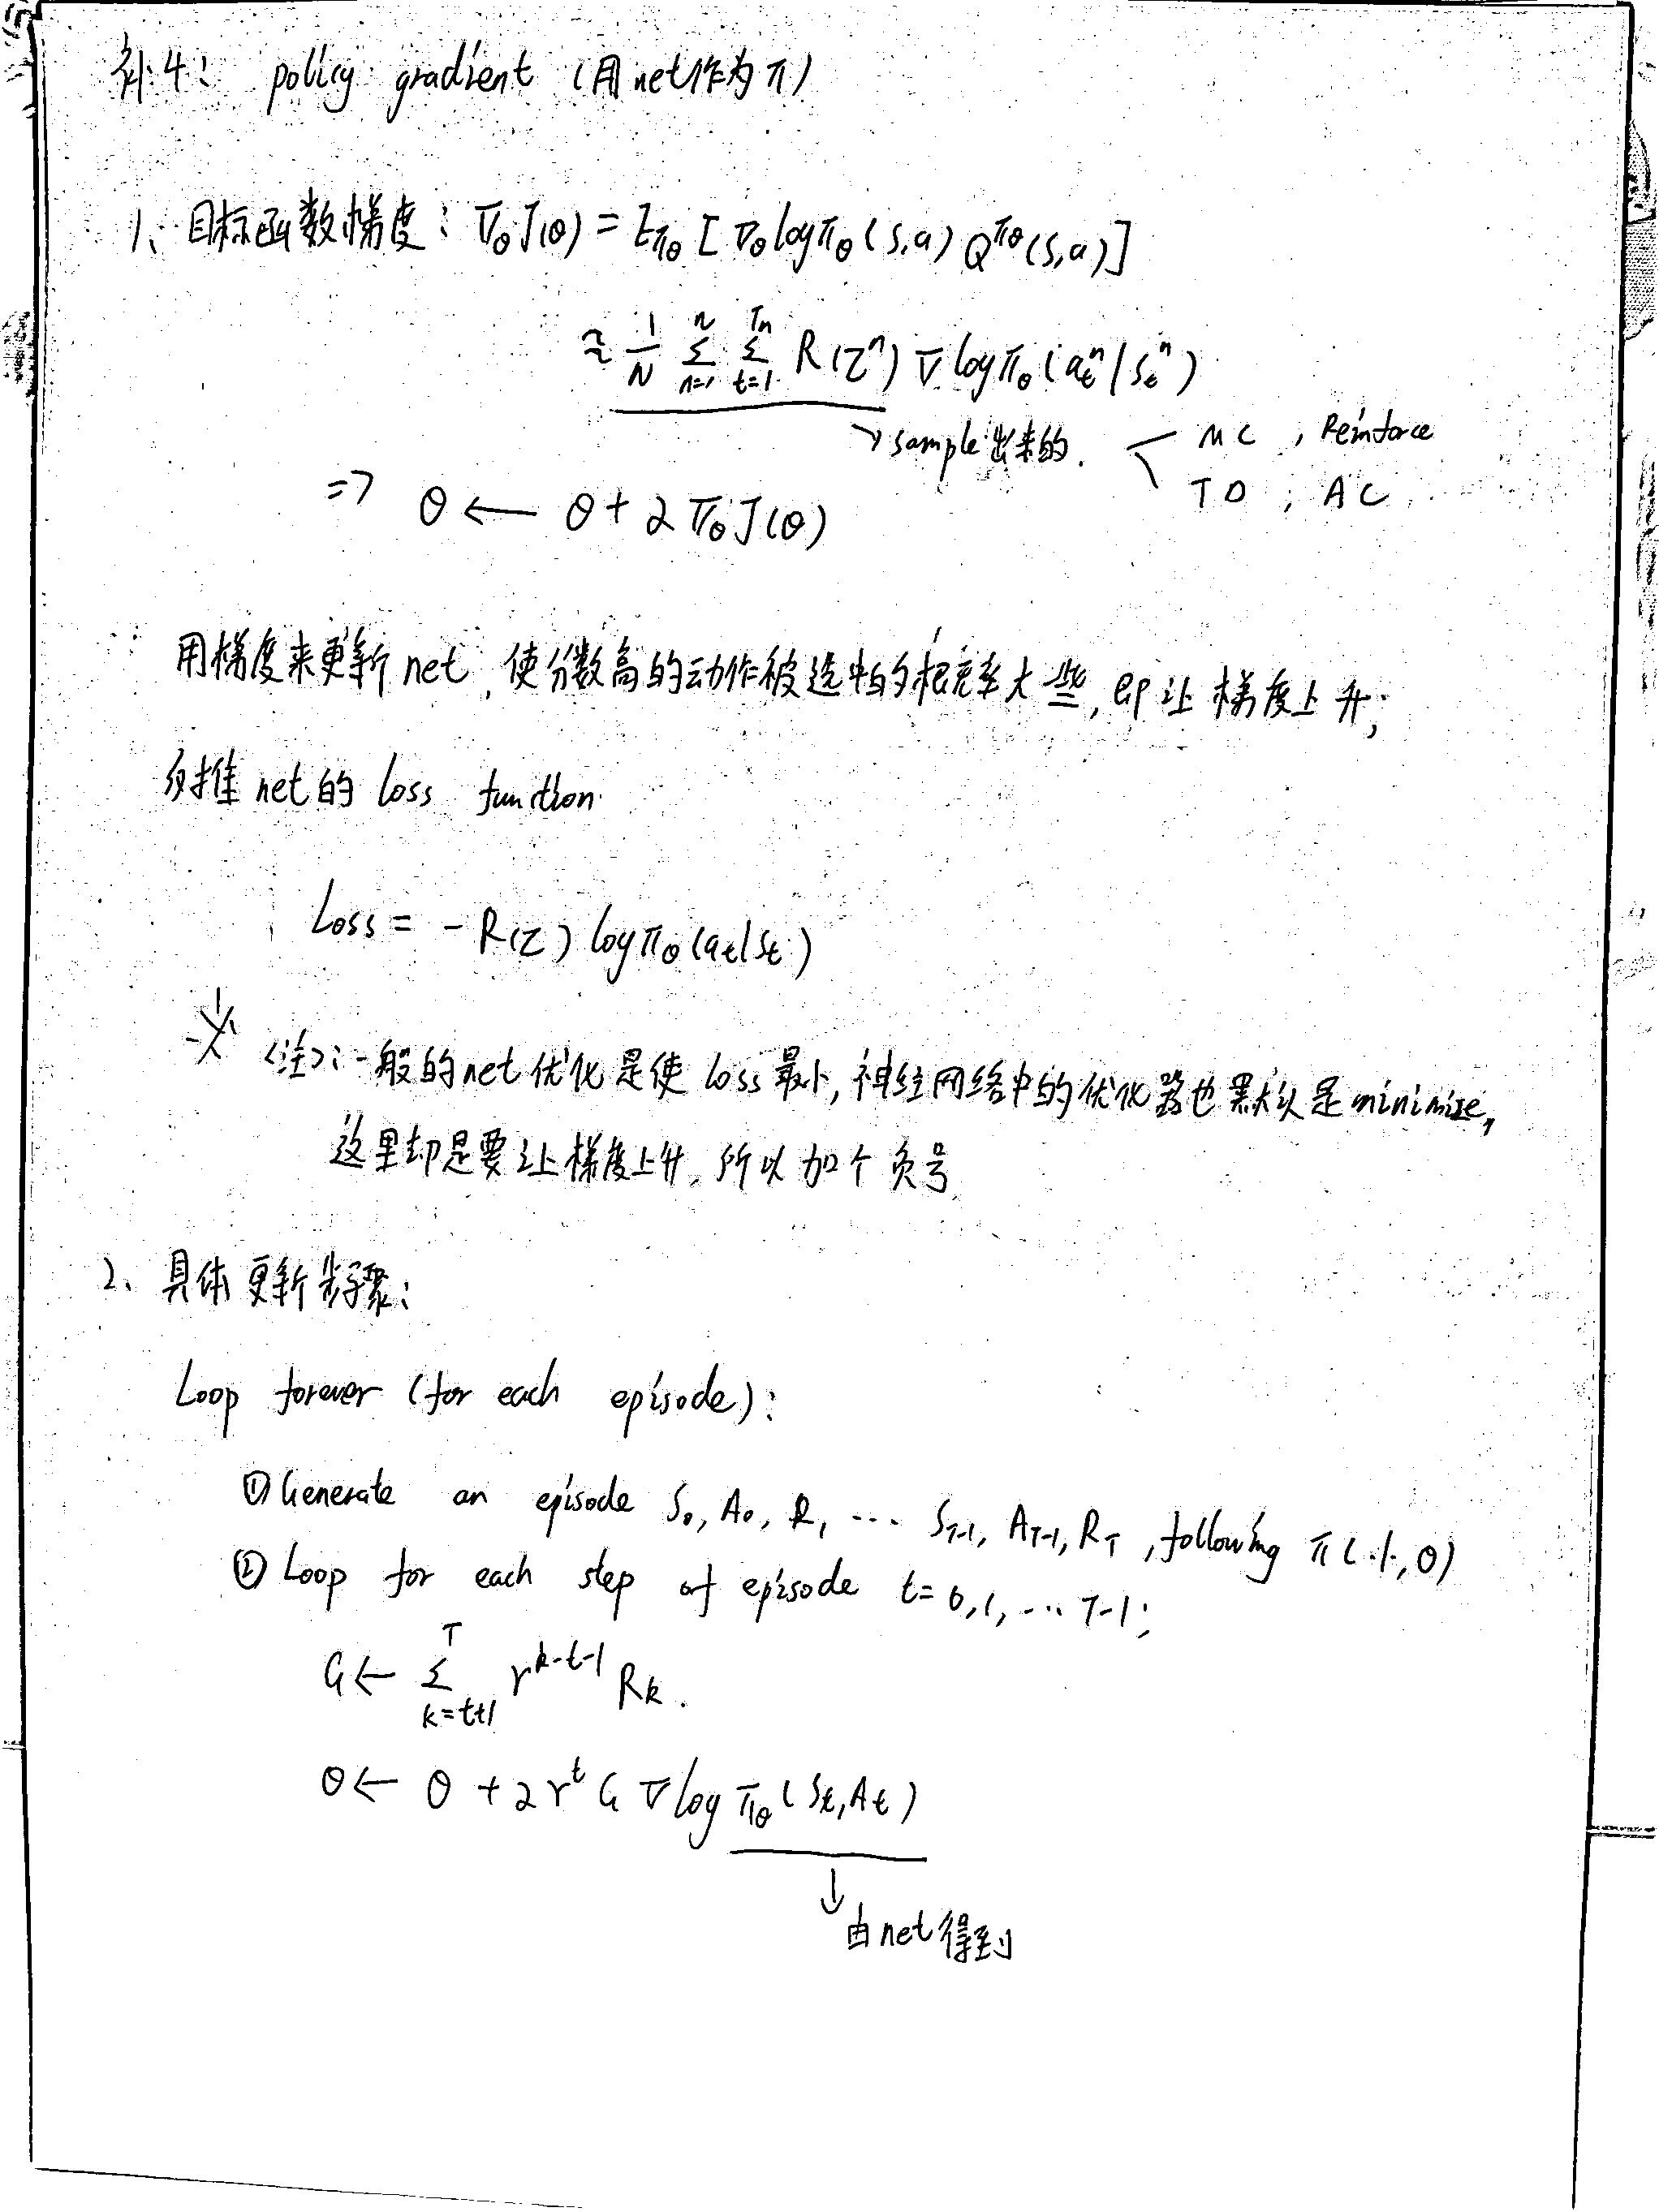 补4: policy gradient (用net作为π)
1、目标函数梯度: ∇θJ(θ) = Eπθ [∇θ logπθ(s,a) Q^πθ(s,a)]
≈ 1/N Σ_{n=1}^{N} Σ_{t=1}^{Tn} R(τ^n) ∇ logπθ(a_t^n | s_t^n)
→ sample出来的. < MC, Reinforce
TD, AC
=> θ ← θ + α ∇θJ(θ)
用梯度来更新net, 使分数高的动作被选中的概率大些, 即让梯度上升;
net的 loss function
Loss = - R(τ) logπθ(at|st)
※ <注>: 一般的net优化是使loss最小, 神经网络中的优化器也默认是minimize,
这里却是要让梯度上升, 所以加个负号
2、具体更新步骤:
Loop forever (for each episode):
① Generate an episode S0, A0, R1 ... S_{T-1}, A_{T-1}, R_T, following π(·|·,θ)
② Loop for each step of episode t=0,1,...T-1:
G ← Σ_{k=t+1}^{T} γ^{k-t-1} R_k.
θ ← θ + αγ^t G ∇log πθ(St,At)
↓
由net得到